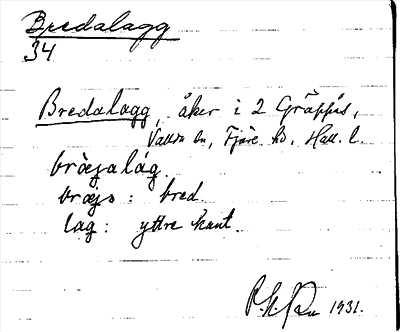 Bredalagg
34
Bredalagg, åker i 2 Gräppås,
Vallda sn, Fjäre hd, Hall. l.
bræʒalág.
bræʒs : bred.
lag : yttre kant.
1931.